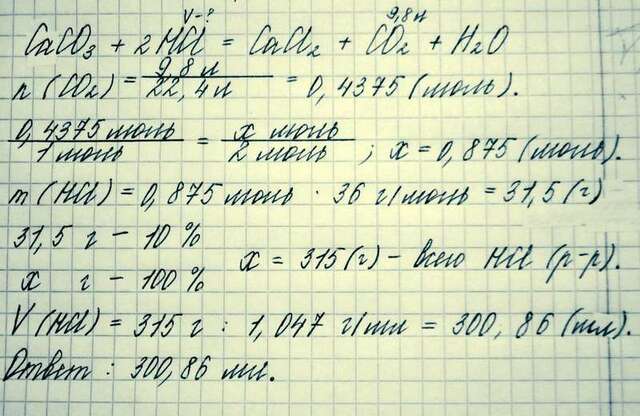 V-? 9,8 л
CaCO3 + 2HCl = CaCl2 + CO2 + H2O
n (CO2) = 9,8 л / 22,4 л = 0,4375 (моль).
0,4375 моль / 1 моль = x моль / 2 моль ; x = 0,875 (моль).
m (HCl) = 0,875 моль · 36 г/моль = 31,5 (г)
31,5 г - 10 %
x г - 100 % x = 315 (г) - всего HCl (р-р).
V (HCl) = 315 г : 1,047 г/мл = 300,86 (мл).
Ответ : 300,86 мл.